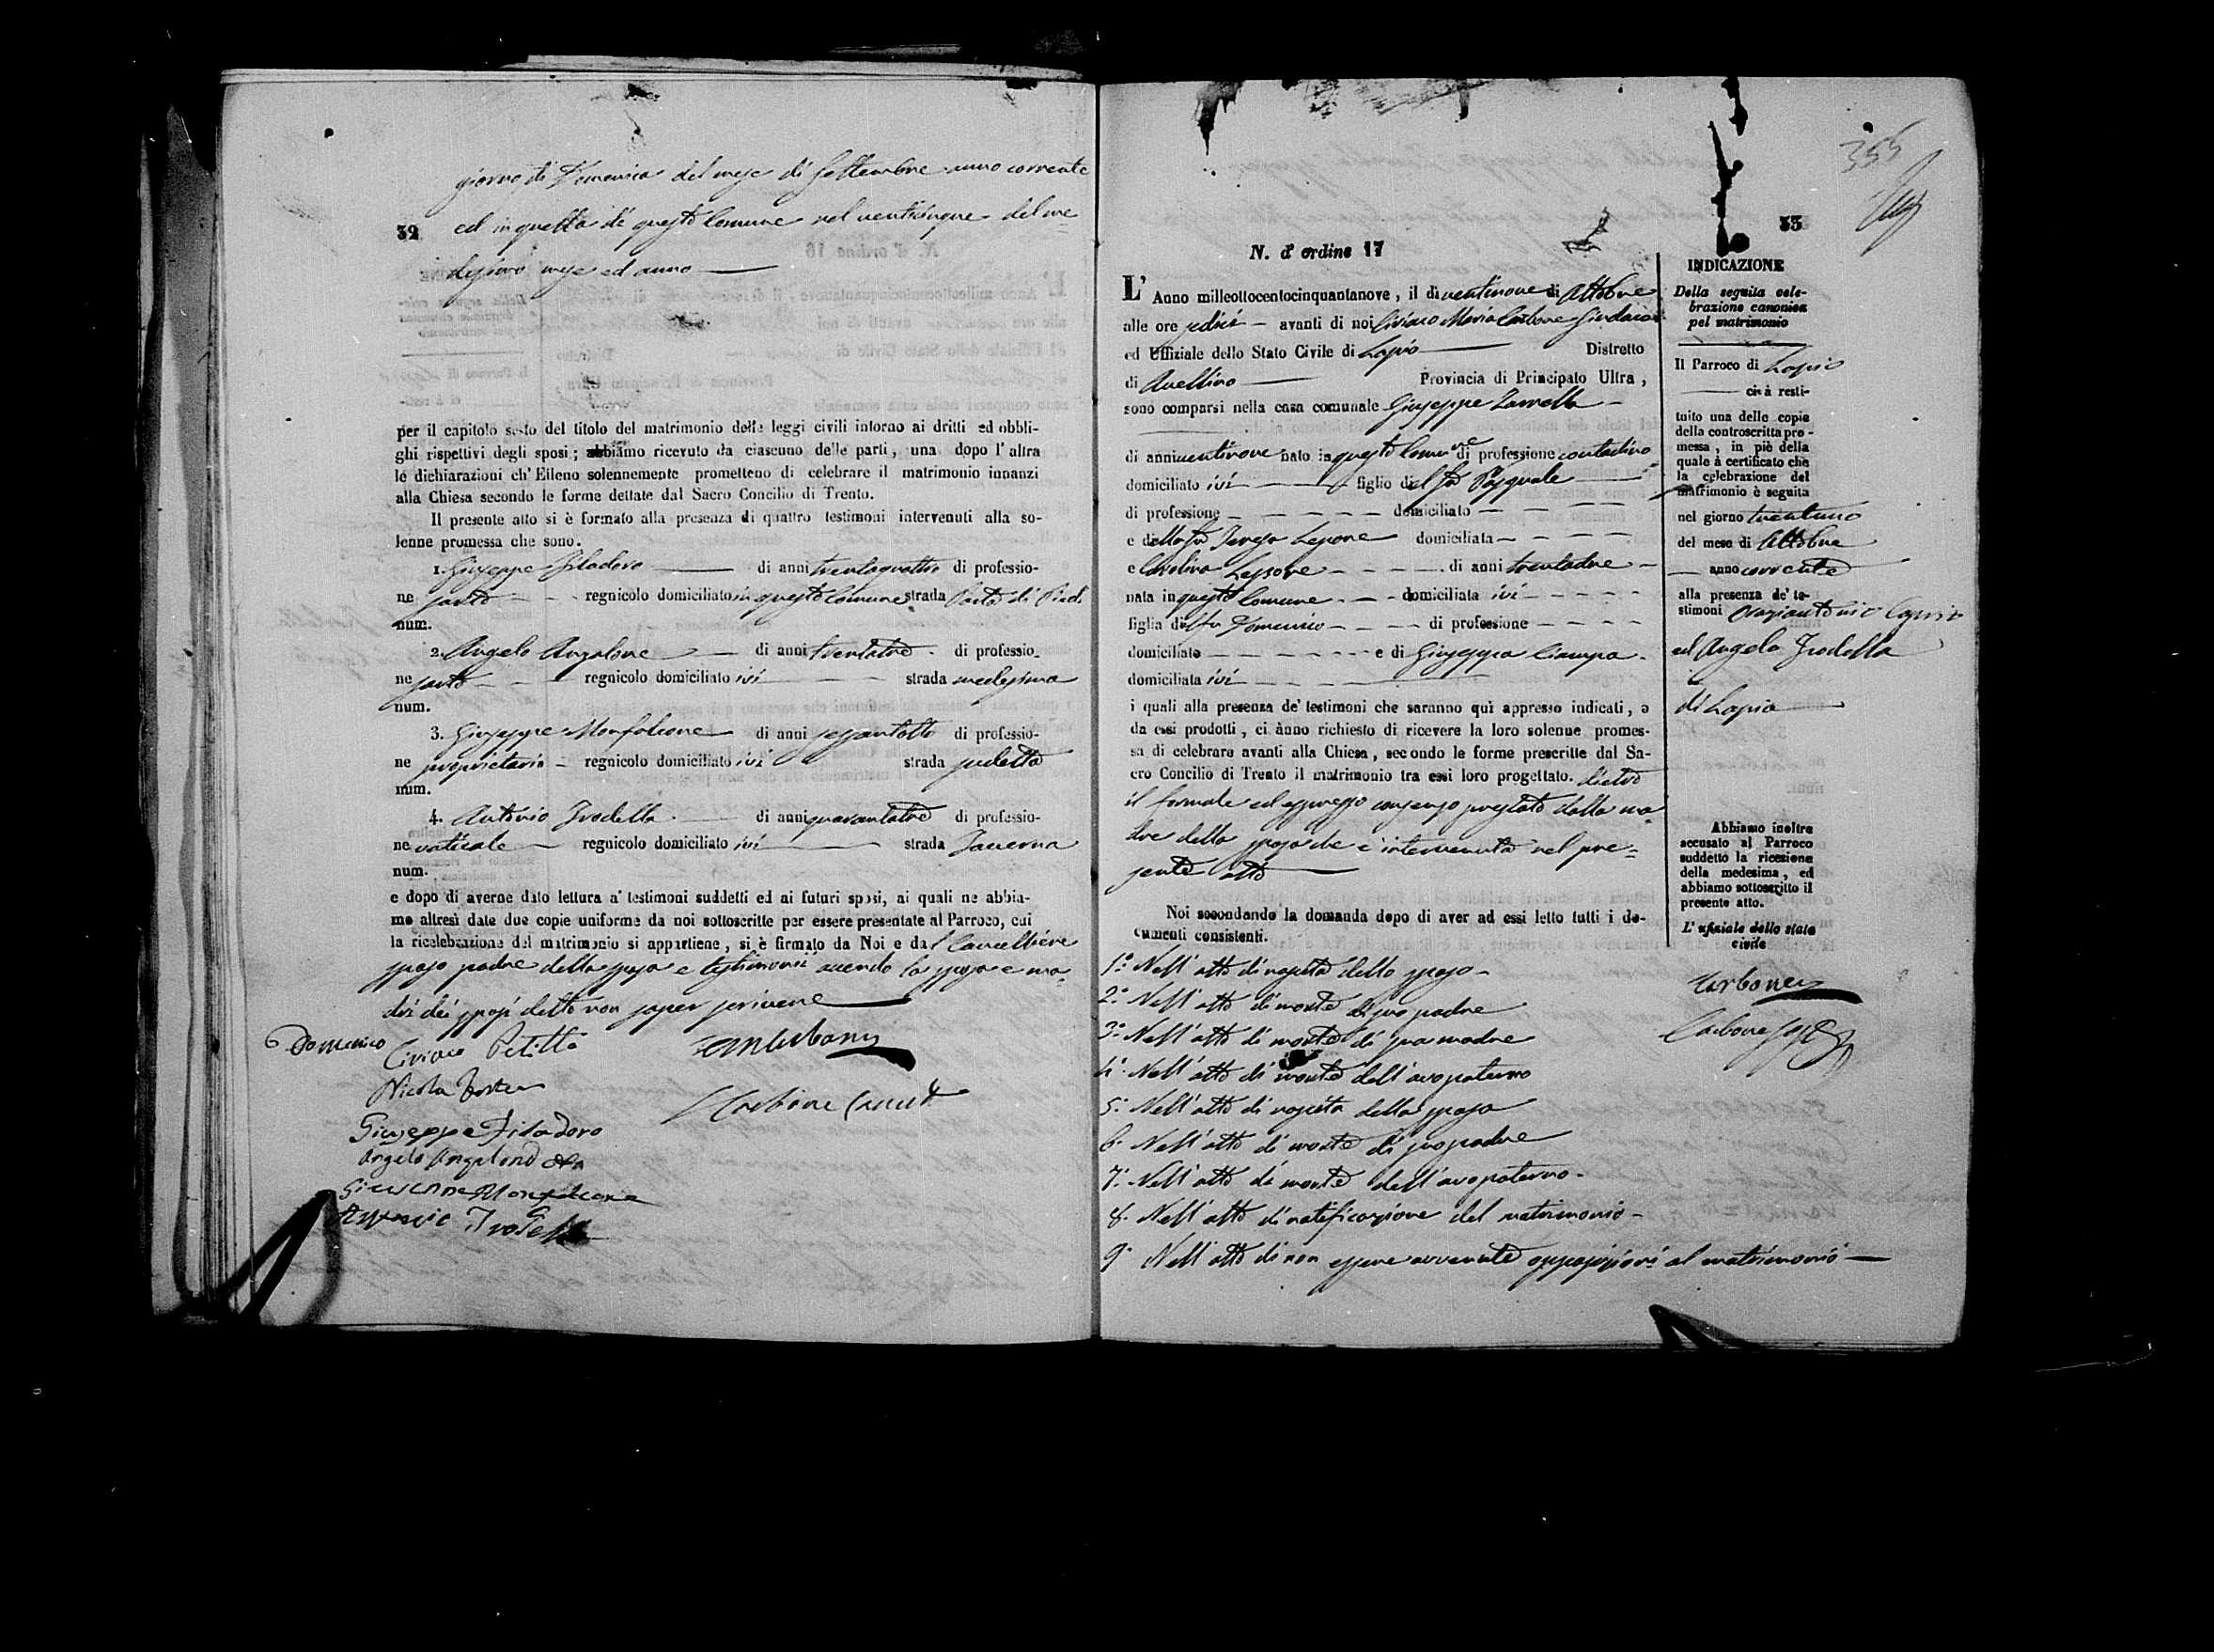 giorno di Domenica del mese di Settembre anno corrente
32 ed in quella di questo Comune nel venticinque del me
desimo mese ed anno
per il capitolo sesto del titolo del matrimonio delle leggi civili intorno ai dritti ed obbli-
ghi rispettivi degli sposi; abbiamo ricevuto da ciascuno delle parti, una dopo l'altra
le dichiarazioni ch' Elleno solennemente promettono di celebrare il matrimonio innanzi
alla Chiesa secondo le forme dettate dal Sacro Concilio di Trento.
Il presente atto si è formato alla presenza di quattro testimoni intervenuti alla so-
lenne promessa che sono.
1. Giuseppe Filadoro di anni trentaquattro di professio-
ne sarto regnicolo domiciliato in questo comune strada Porta di
num.
2. Angelo Angelone di anni trentatre di professio-
ne sarto regnicolo domiciliato ivi strada medesima
num.
3. Giuseppe Monfalcone di anni sessantotto di professio-
ne proprietario regnicolo domiciliato ivi strada sudetta
num.
4. Antonio Trodella di anni quarantatre di professio-
ne vaticale regnicolo domiciliato ivi strada Taverna
num.
e dopo di averne dato lettura a' testimoni suddetti ed ai futuri sposi, ai quali ne abbia-
mo altresì date due copie uniforme da noi sottoscritte per essere presentate al Parroco, cui
la ricelebrazione del matrimonio si appartiene, si è firmato da Noi e dal Cancelliere
sposo padre della sposa e testimonii avendo la sposa e ma-
dri dei sposi detto non saper scrivere
Domenico Ciriaco Petitto
Nicola
Giuseppe Filadoro
Angelo Angelone
Giuseppe Monfalcone
Antonio Trodella
Carbone
Carbone Canc
355
33
N. d' ordine 17
L' Anno milleottocentocinquantanove, il dì ventinove di Ottobre
alle ore sedici avanti di noi Ciriaco Maria Carbone Sindaco
ed Uffiziale dello Stato Civile di Lapio Distretto
di Avellino Provincia di Principato Ultra,
sono comparsi nella casa comunale Giuseppe Zarrella
di anni ventinove nato in questo Comune di professione contadino
domiciliato ivi figlio del fu Pasquale
di professione domiciliato
e della fu Teresa Lepore domiciliata
e Carolina Lepore di anni trentadue
nata in questo Comune domiciliata ivi
figlia del fu Domenico di professione
domiciliato e di Giuseppa Ciampa
domiciliata ivi
i quali alla presenza de' testimoni che saranno quì appresso indicati, e
da essi prodotti, ci ànno richiesto di ricevere la loro solenne promes-
sa di celebrare avanti alla Chiesa, secondo le forme prescritte dal Sa-
cro Concilio di Trento il matrimonio tra essi loro progettato. dietro
il formale ed espresso consenso prestato dalla ma
dre della sposa che è intervenuta nel pre-
sente atto
Noi secondando la domanda dopo di aver ad essi letto tutti i do-
cumenti consistenti.
1.° Nell'atto di nascita dello sposo
2.° Nell'atto di morte di suo padre
3.° Nell'atto di morte di sua madre
4.° Nell'atto di morte dell'avo paterno
5. Nell'atto di nascita della sposa
6. Nell'atto di morte di suo padre
7. Nell'atto di morte dell'avo paterno
8. Nell'atto di notificazione del matrimonio
9. Nell'atto di non essere avvenute opposizioni al matrimonio
INDICAZIONE
Della seguita cele-
brazione canonica
pel matrimonio
Il Parroco di Lapio
ci à resti-
tuito una delle copie
della controscritta pro-
messa, in piè della
quale à certificato che
la celebrazione del
matrimonio è seguita
nel giorno trentuno
del mese di Ottobre
anno corrente
alla presenza de' te-
stimoni Oraziantonio Caprio
ed Angelo Trodella
di Lapio
Abbiamo inoltre
accusato al Parroco
suddetto la ricezione
della medesima, ed
abbiamo sottoscritto il
presente atto.
L' ufiziale dello stato
civile
Carbone
Carbone